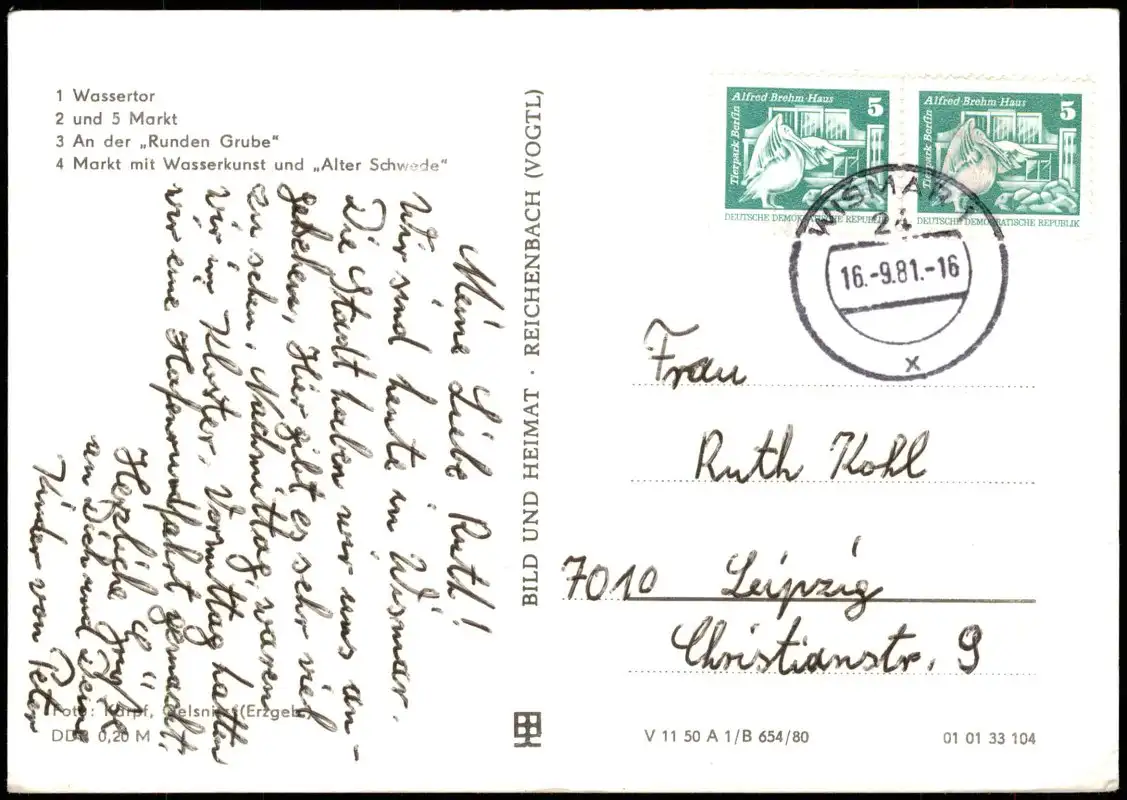 1 Wassertor
2 und 5 Markt
3 An der „Runden Grube“
4 Markt mit Wasserkunst und „Alter Schwede“
Meine Liebe Ruth!
Wir sind heute in Wismar.
Die Stadt haben wir uns an-
gesehen, Hier gibt es sehr viel
zu sehen, Nachmittag waren
wir im Kloster, Vormittag hatten
wir eine Hafenrundfahrt gemacht,
Herzliche Grüße
an Dich und Deine
Kinder von Peter
Foto: Karpf, Oelsnitz (Erzgeb.)
DDR 0,20 M
BILD UND HEIMAT · REICHENBACH (VOGTL)
Alfred Brehm-Haus 5
Tierpark Berlin
DEUTSCHE DEMOKRATISCHE REPUBLIK
Alfred Brehm-Haus 5
Tierpark Berlin
DEUTSCHE DEMOKRATISCHE REPUBLIK
WISMAR 1
24
16.-9.81.-16
x
Frau
Ruth Kohl
7010 Leipzig
Christianstr. 9
V 11 50 A 1/B 654/80
01 01 33 104